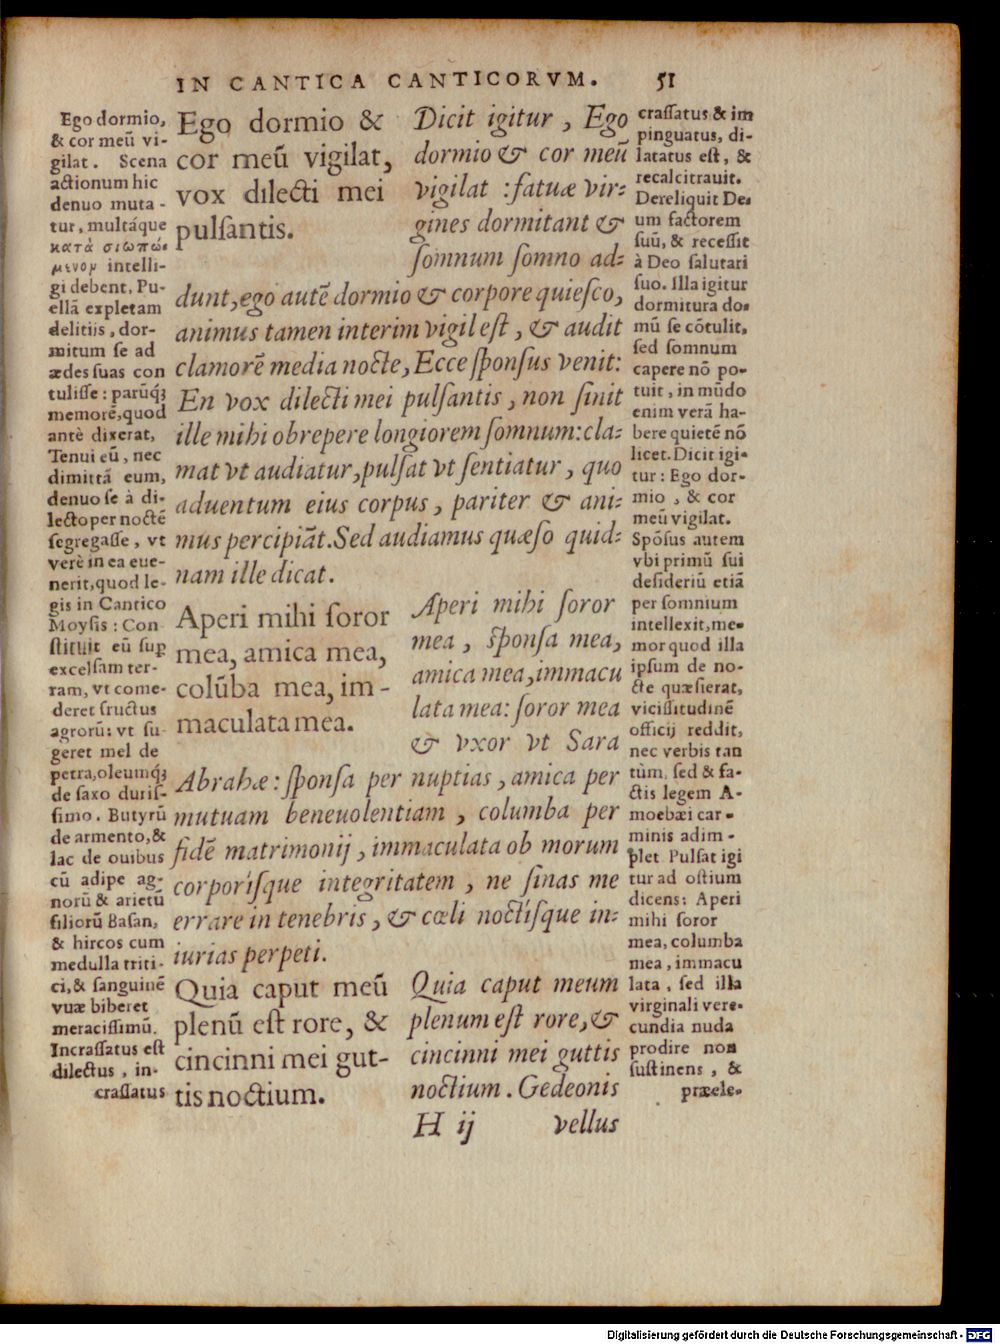 IN CANTICA CANTICORVM. 51
Ego dormio,
& cor meũ vi-
gilat. Scena
actionum hic
denuo muta-
tur, multáque
κατὰ σιωπώ-
μενον intelli-
gi debent, Pu-
ellã expletam
delitijs, dor-
mitum se ad
ædes suas con
tulisse: parũqꝫ
memorē,quod
antè dixerat,
Tenui eũ, nec
dimittã eum,
denuo se à di-
lecto per noctē
segregasse, vt
verè in ea eue-
nerit,quod le-
gis in Cantico
Moysis: Con
stituit eũ suꝑ
excelsam ter-
ram, vt come-
deret fructus
agrorũ: vt su-
geret mel de
petra,oleumqꝫ
de saxo duris-
simo. Butyrũ
de armento,&
lac de ouibus
cũ adipe ag-
norũ & arietũ
filiorũ Basan,
& hircos cum
medulla triti-
ci,& sanguinē
vuæ biberet
meracissimũ.
Incrassatus est
dilectus, in-
crassatus
Ego dormio &
cor meũ vigilat,
vox dilecti mei
pulsantis.
Dicit igitur, Ego
dormio & cor meũ
vigilat: fatuæ vir-
gines dormitant &
somnum somno ad-
dunt,ego autē dormio & corpore quiesco,
animus tamen interim vigil est, & audit
clamorē media nocte, Ecce sponsus venit:
En vox dilecti mei pulsantis, non sinit
ille mihi obrepere longiorem somnum: cla-
mat vt audiatur,pulsat vt sentiatur, quo
aduentum eius corpus, pariter & ani-
mus percipiãt. Sed audiamus quæso quid-
nam ille dicat.
Aperi mihi soror
mea, amica mea,
colũba mea, im-
maculata mea.
Aperi mihi soror
mea, sponsa mea,
amica mea,immacu
lata mea: soror mea
& vxor vt Sara
Abrahæ: sponsa per nuptias, amica per
mutuam beneuolentiam, columba per
fidē matrimonij, immaculata ob morum
corporísque integritatem, ne sinas me
errare in tenebris, & cœli noctísque in-
iurias perpeti.
Quia caput meũ
plenũ est rore, &
cincinni mei gut-
tis noctium.
Quia caput meum
plenum est rore,&
cincinni mei guttis
noctium. Gedeonis
H ij vellus
crassatus & im
pinguatus, di-
latatus est, &
recalcitrauit.
Dereliquit De-
um factorem
suũ, & recessit
à Deo salutari
suo. Illa igitur
dormitura do-
mũ se cõtulit,
sed somnum
capere nõ po-
tuit, in mũdo
enim verã ha-
bere quietē nõ
licet. Dicit igi-
tur: Ego dor-
mio, & cor
meũ vigilat.
Spõsus autem
vbi primũ sui
desideriũ etiã
per somnium
intellexit,me-
mor quod illa
ipsum de no-
cte quæsierat,
vicissitudinē
officij reddit,
nec verbis tan
tùm, sed & fa-
ctis legem A-
moebæi car-
minis adim-
plet. Pulsat igi
tur ad ostium
dicens: Aperi
mihi soror
mea, columba
mea, immacu
lata, sed illa
virginali vere-
cundia nuda
prodire non
sustinens, &
præele-
Digitalisierung gefördert durch die Deutsche Forschungsgemeinschaft - DFG